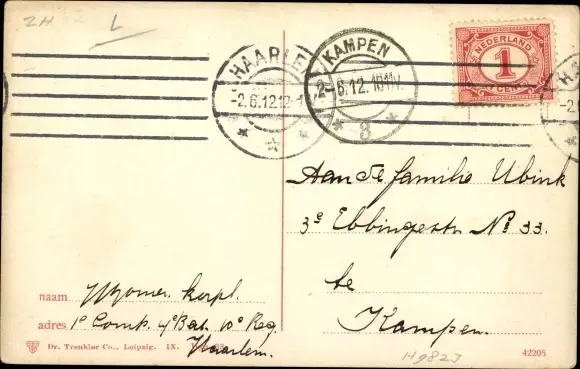 2H L
HAARLE
-2.6.12.12-1
KAMPEN
2-6.12.10-11V.
8
NEDERLAND
1
CENT
HA
-2
Aan de familie Ubink
3e Ebbingestr No 33.
te
Kampen.
naam korpl.
adres 1e Comp. 4e Bat. 10e Reg.
Haarlem.
Dr. Trenkler Co., Leipzig. IX.
H9823
42205